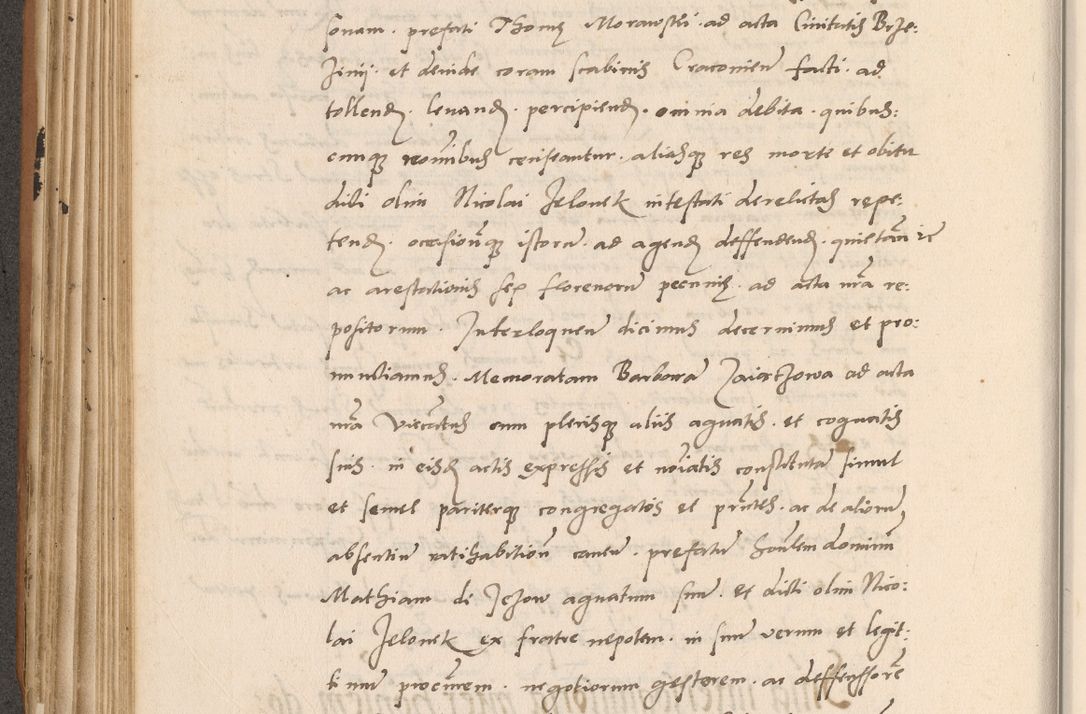 sonam . prefati Thome Morawski . ad acta Civitatis Brze:
zinii . et deinde coram scabinis Cracovien facti . ad
tollend . levand . percipiend . omnia debita . quibus:
cunque nominibus censeantur . aliasque res morte et obitu
dicti olim Nicolai Jelonek intestati derelictas repe:
tend . occasionque istorum . ad agend deffendend . quietan
ac arestationis sex florenorum pecuniis . ad acta nra re:
positorum . Interloquen dicimus decernimus et pro:
nunctiamus . Memoratam Barbaram Zaiaczowa ad acta
nra cum plerisque aliis agnatis . et cognatis
suis . in eisd actis expressis et noiatis constitutam simul
et semel pariterque congregatos et pntes . ac de aliorum
absentium ratihabition caven . prefatum honlem dominum
Mathiam de Jezow agnatum suum . et dicti olim Nico:
lai Jelonek ex fratre nepotem . in suum verum et legit:
timum procurem . negotiorum gestorem . ac deffensorem